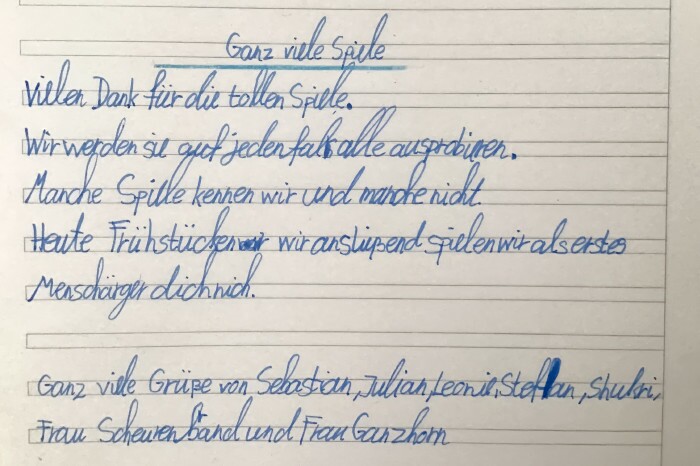 Ganz viele Spiele
Vielen Dank für die tollen Spiele.
Wir werden sie auf jeden fall alle ausprobieren.
Manche Spiele kennen wir und manche nicht.
Heute Frühstücken wir anslißend spielen wir als erstes
Menschärger dich nich.
Ganz viele Grüße von Sebastian, Julian, Leonie, Steffan, Shukri,
Frau Scheurenbrand und Frau Ganzhorn